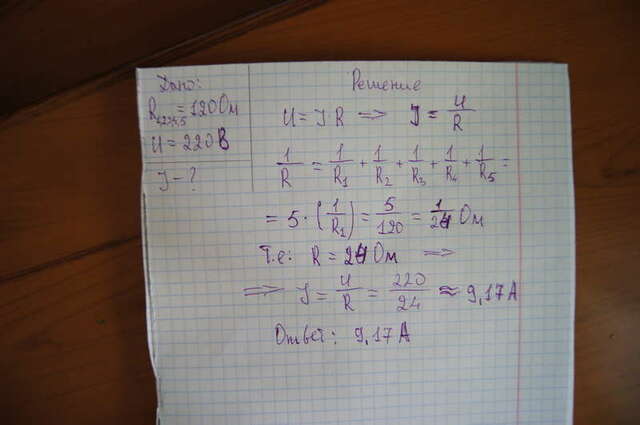 Дано:
R1,2,3,4,5 = 120 Ом
U = 220 В
J - ?
Решение
U = J·R => J = U/R
1/R = 1/R1 + 1/R2 + 1/R3 + 1/R4 + 1/R5 =
= 5·(1/R1) = 5/120 = 1/24 Ом
Т.е: R = 24 Ом =>
=> J = U/R = 220/24 ≈ 9,17 А
Ответ: 9,17 А